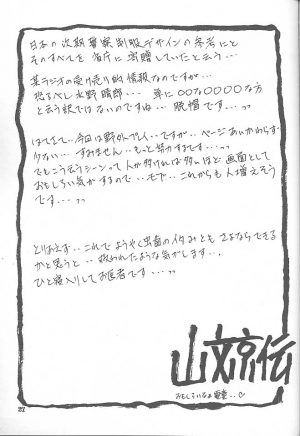 日本の次期警察制服デザインの参考にと
そのすべてを省庁に寄贈していたと云う‥
某ラジオの受け売り的情報なのですが‥
恐るべし水野晴郎‥単に○○な○○○○な方
と云う訳ではないのですね‥脱帽です‥‥ッッ
はてさて‥今回は野外プレイ‥ですが‥ページあいかわらず
少ない‥すみません‥もっと努力するです‥‥ッッ
でもこう云うシーンって人が多ければ多いほど画面として
おもしろい気がするので‥モブ‥これからも人増えそう
です‥‥ッッ
とりあえず‥これでようやく虫歯のイタみとも さよならできる
かと思うと‥救われたような気がします‥
ひと寝入りしてお医者です‥‥ッッ
山文京伝
おもしろいなぁ電童‥♡
27